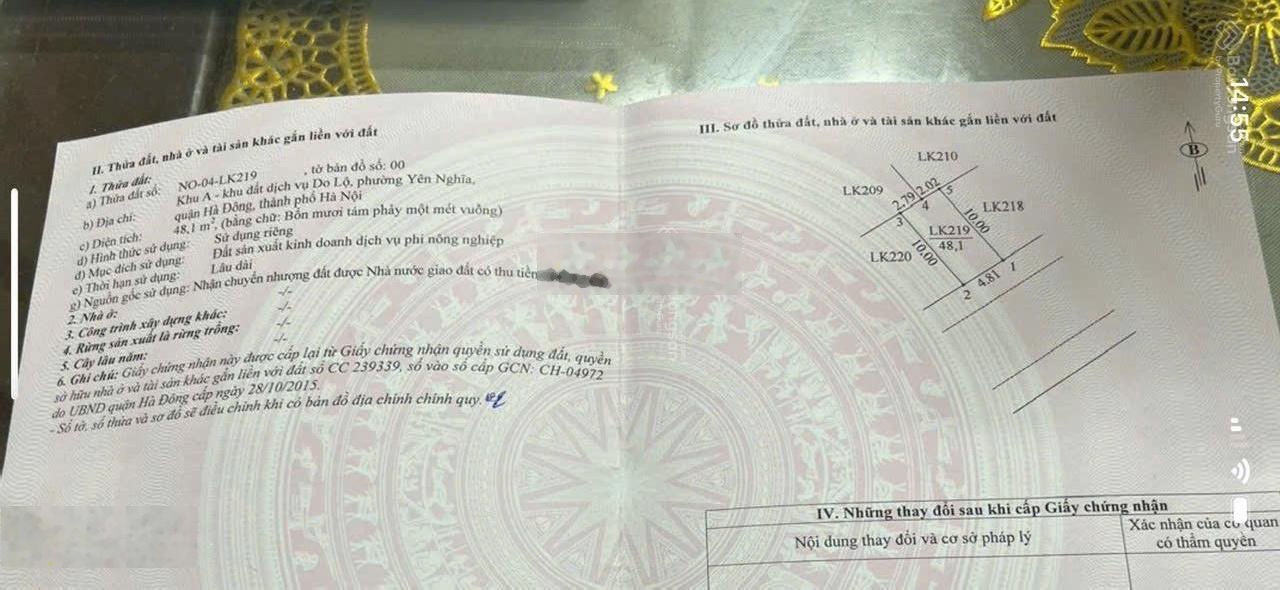 II. Thửa đất, nhà ở và tài sản khác gắn liền với đất
1. Thửa đất:
a) Thửa đất số: NO-04-LK219 , tờ bản đồ số: 00
b) Địa chỉ: Khu A - khu đất dịch vụ Do Lộ, phường Yên Nghĩa,
quận Hà Đông, thành phố Hà Nội
c) Diện tích: 48,1 m², (bằng chữ: Bốn mươi tám phảy một mét vuông)
d) Hình thức sử dụng: Sử dụng riêng
đ) Mục đích sử dụng: Đất sản xuất kinh doanh dịch vụ phi nông nghiệp
e) Thời hạn sử dụng: Lâu dài
g) Nguồn gốc sử dụng: Nhận chuyển nhượng đất được Nhà nước giao đất có thu tiền
2. Nhà ở: -/-
3. Công trình xây dựng khác: -/-
4. Rừng sản xuất là rừng trồng: -/-
5. Cây lâu năm: -/-
6. Ghi chú: Giấy chứng nhận này được cấp lại từ Giấy chứng nhận quyền sử dụng đất, quyền
sở hữu nhà ở và tài sản khác gắn liền với đất số CC 239339, số vào sổ cấp GCN: CH-04972
do UBND quận Hà Đông cấp ngày 28/10/2015.
- Số tờ, số thửa và sơ đồ sẽ điều chỉnh khi có bản đồ địa chính chính quy.
III. Sơ đồ thửa đất, nhà ở và tài sản khác gắn liền với đất
B
LK210
LK209
2.79 2.02
5
4
3
LK218
10.00
LK219
48,1
LK220
10.00
1
4.81
2
IV. Những thay đổi sau khi cấp Giấy chứng nhận
Nội dung thay đổi và cơ sở pháp lý
Xác nhận của cơ quan
có thẩm quyền
14:55